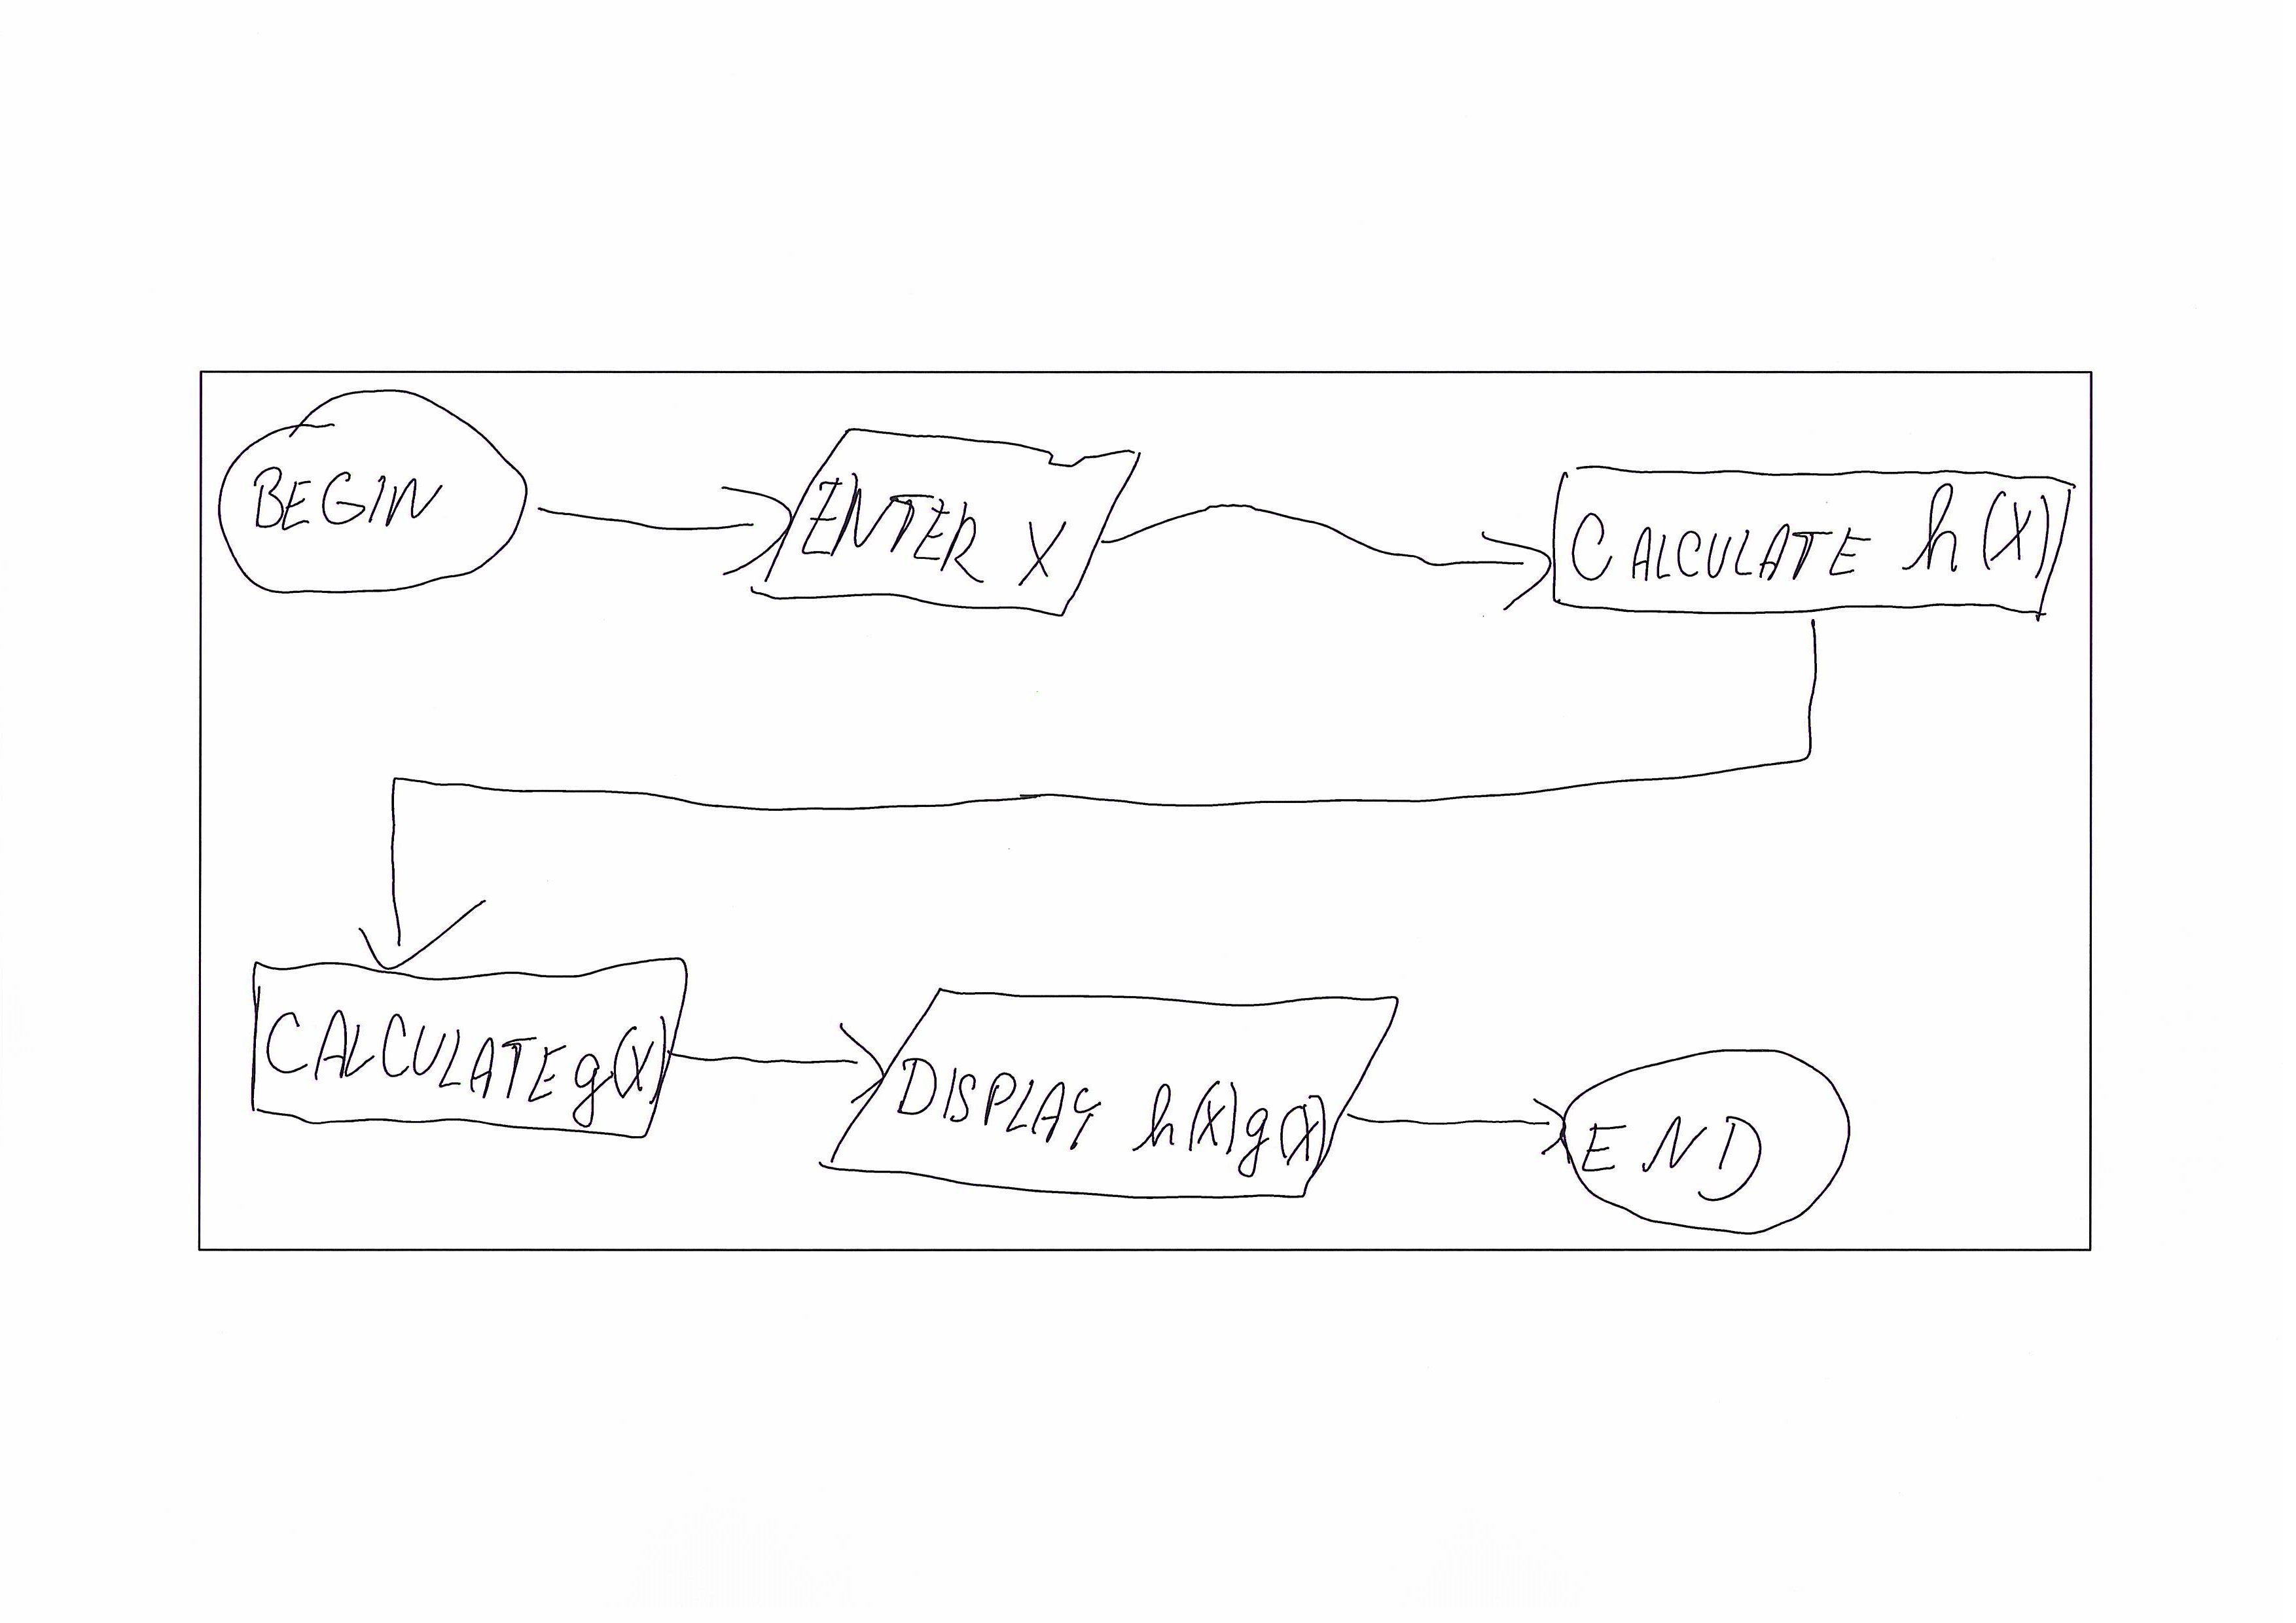 BEGIN
ENTER X
CALCULATE h(X)
CALCULATE g(X)
DISPLAY h(X)g(X)
END